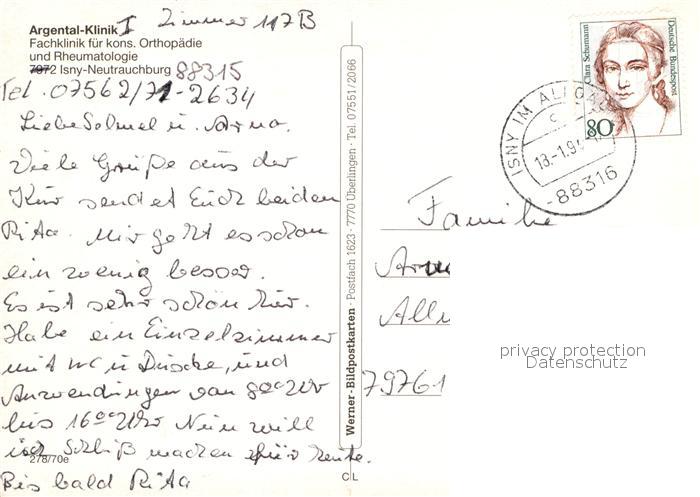 Argental-Klinik I Zimmer 117B
Fachklinik für kons. Orthopädie
und Rheumatologie
7972 Isny-Neutrauchburg 88315
Tel. 07562/71-2634
Liebe Selma u. Arno.
Viele Grüße aus der
Kur sendet Euch beiden
Rita. Mir geht es schon
ein wenig besser.
Es ist sehr schön hier.
Habe ein Einzelzimmer
mit WC u Dusche, und
Anwendungen von 8⁰⁰ Uhr
bis 16⁰⁰ Uhr Nun will
ich Schluß machen für heute.
Bis bald Rita
278/70e
Werner-Bildpostkarten · Postfach 1623 · 7770 Überlingen · Tel. 07551/2066
C L
Clara Schumann
Deutsche Bundespost
80
ISNY IM ALLGÄU
c
18.-1.9
-88316
Familie
Arn
All
79761
privacy protection
Datenschutz